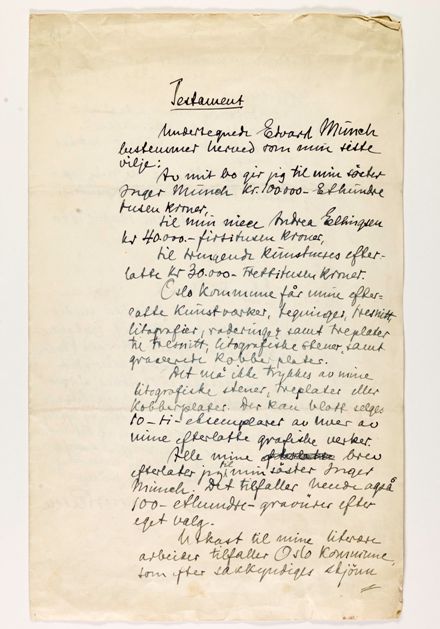 Testament
Undertegnede Edvard Munch
bestemmer herved som min siste
vilje:
Av mit bo gir jeg til min søster
Inger Munch kr. 100000- Ethundre
tusen kroner,
til min niece Andrea Ellingsen
kr 40000.- firtitusen kroner,
til trengende kunstneres efter-
latte kr 30.000- Trettitusen kroner.
Oslo kommune får mine efter-
latte kunstverker, tegninger, tresnitt,
litografier, raderinger samt treplater
til tresnitt, litografiske stener, samt
graverede kobberplater.
Det må ikke trykkes av mine
litografiske stener, treplater eller
kobberplater. Der kan blott selges
10-ti-eksemplarer av hver av
mine efterlatte grafiske verker.
Alle mine brev
efterlater jeg til min søster Inger
Munch. Det tilfaller hende også
100- ethundre- gravures efter
eget valg.
Utkast til mine literære
arbeider tilfaller Oslo Kommune,
som efter sakkyndiges skjønn